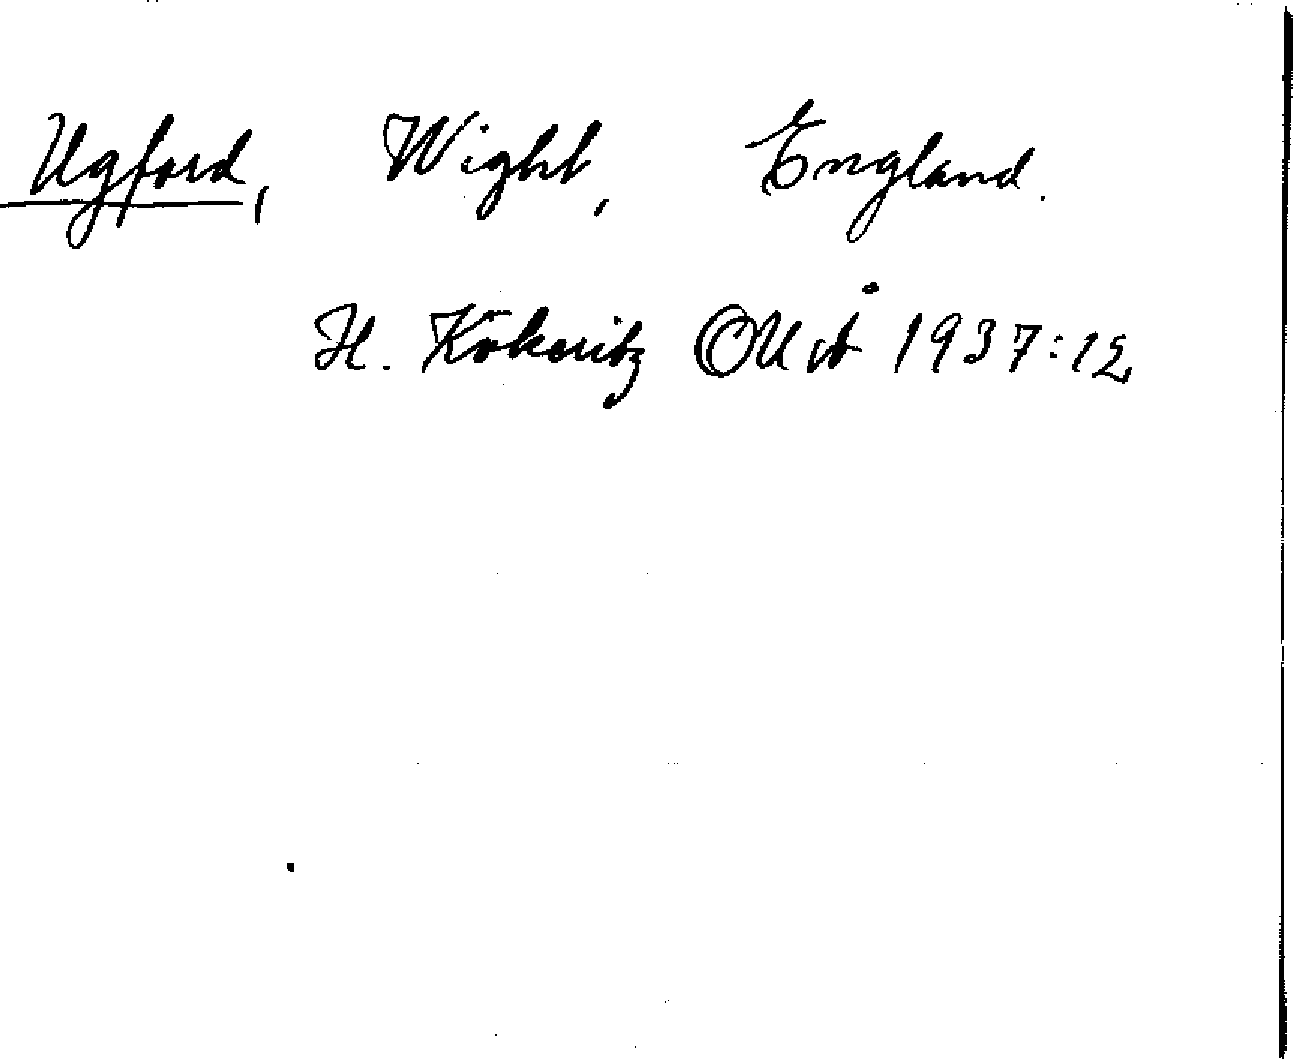 Ugford, Wight, England.
H. Kökeritz OUÅ 1937:12